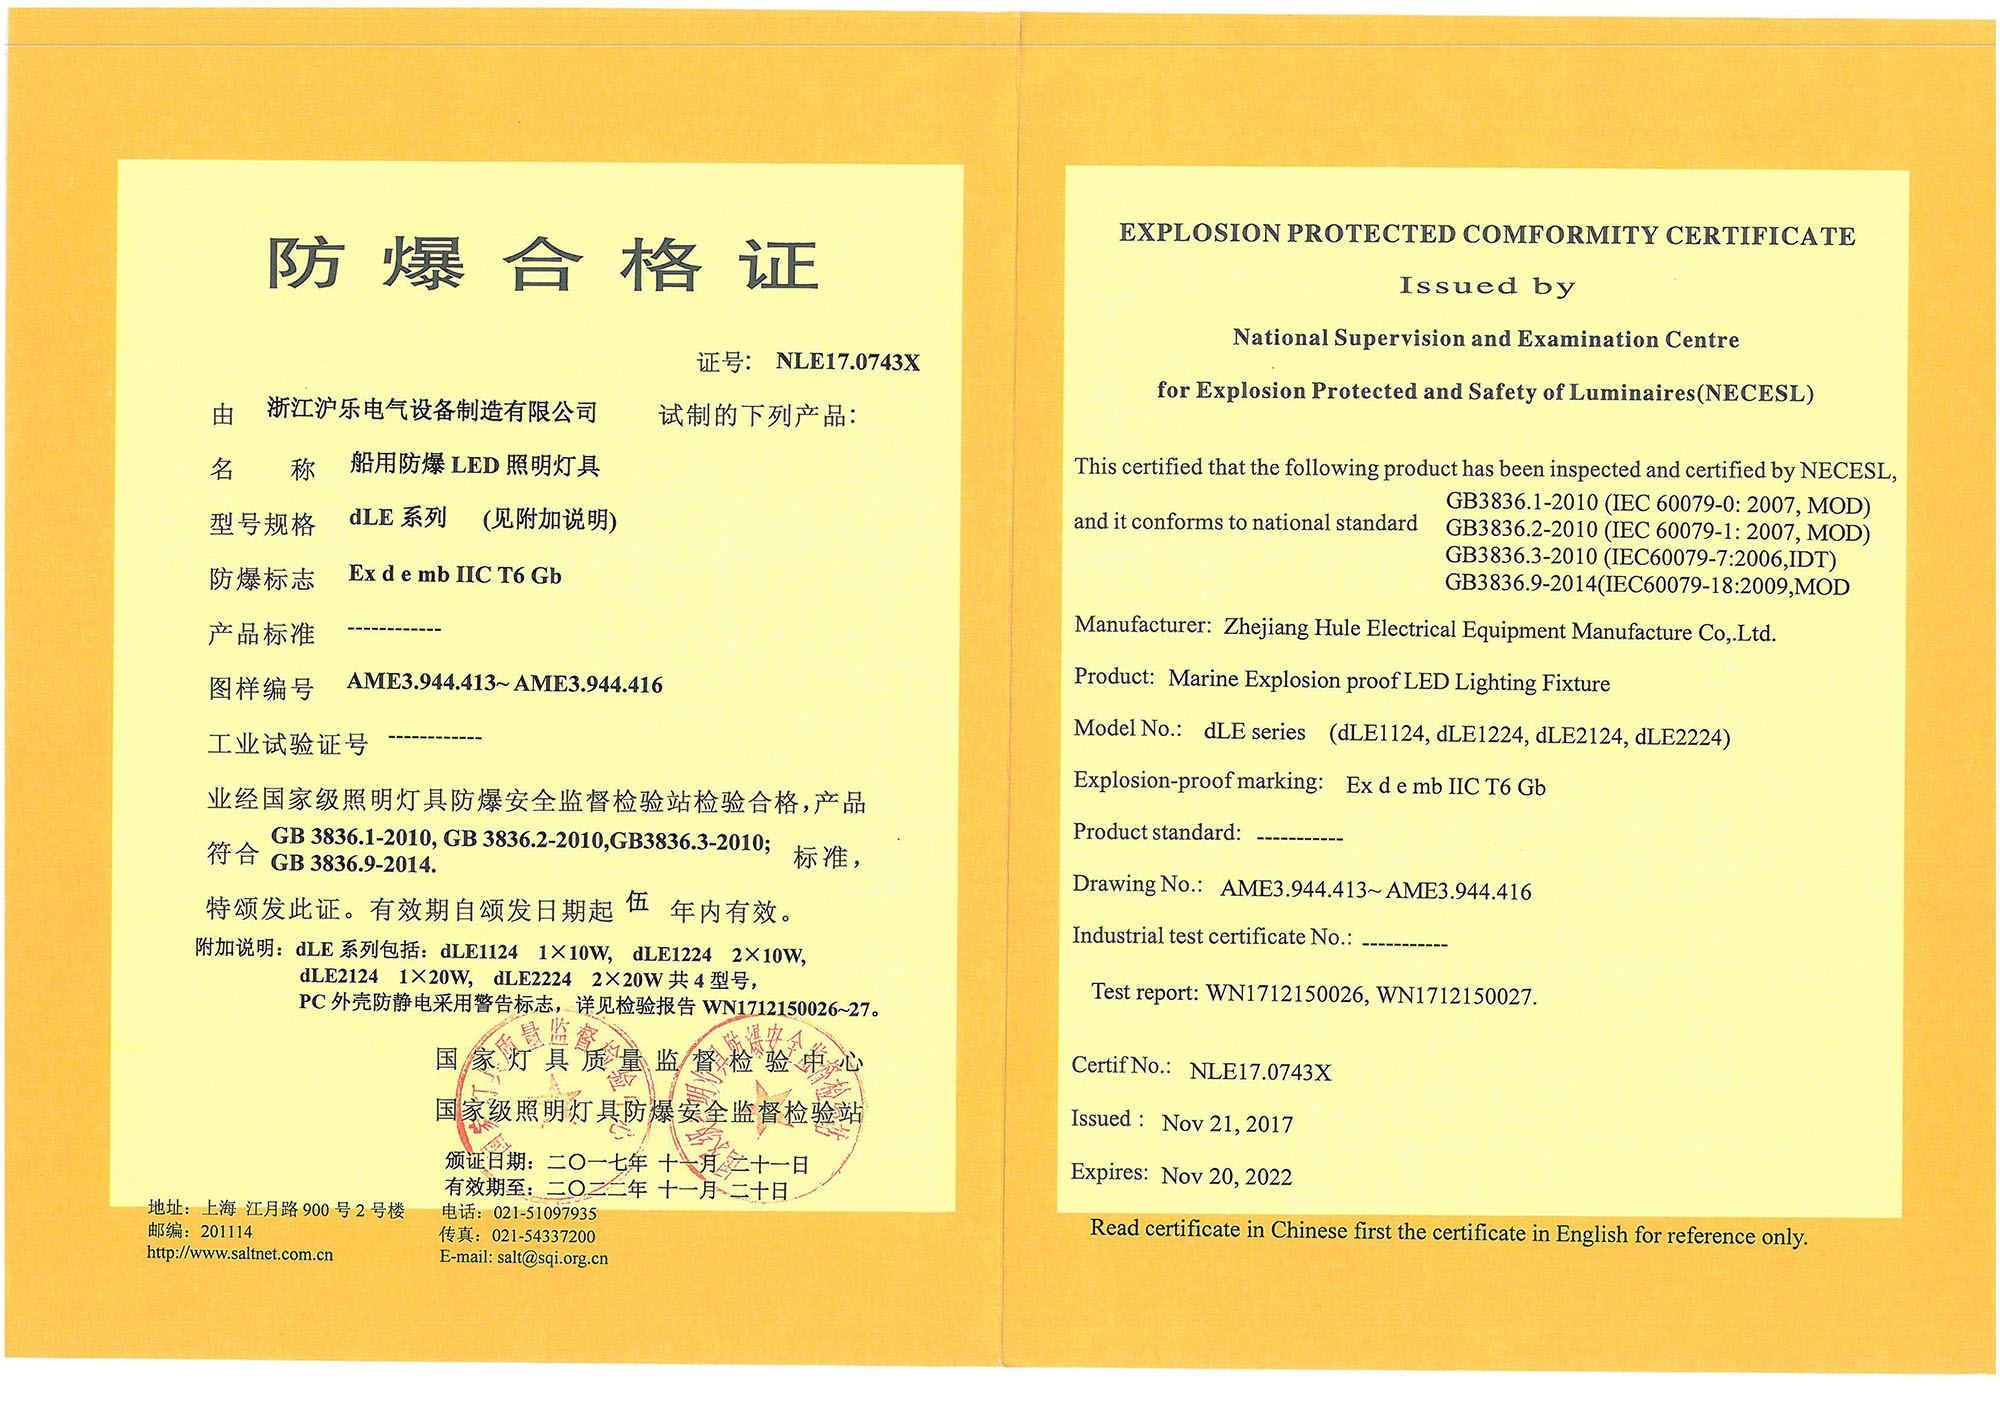 防爆合格证
证号： NLE17.0743X
由 浙江沪乐电气设备制造有限公司 试制的下列产品：
名 称 船用防爆 LED 照明灯具
型号规格 dLE 系列 (见附加说明)
防爆标志 Ex d e mb IIC T6 Gb
产品标准 ------------
图样编号 AME3.944.413~ AME3.944.416
工业试验证号 ------------
业经国家级照明灯具防爆安全监督检验站检验合格，产品
符合 GB 3836.1-2010, GB 3836.2-2010,GB3836.3-2010;
GB 3836.9-2014. 标准，
特颁发此证。有效期自颁发日期起 伍 年内有效。
附加说明：dLE 系列包括：dLE1124 1×10W, dLE1224 2×10W,
dLE2124 1×20W, dLE2224 2×20W 共 4 型号，
PC 外壳防静电采用警告标志，详见检验报告 WN1712150026~27。
国家灯具质量监督检验中心
国家级照明灯具防爆安全监督检验站
颁证日期：二〇一七年 十一月 二十一日
有效期至：二〇二二年 十一月 二十日
地址：上海 江月路 900 号 2 号楼 电话：021-51097935
邮编：201114 传真：021-54337200
http://www.saltnet.com.cn E-mail: salt@sqi.org.cn
EXPLOSION PROTECTED COMFORMITY CERTIFICATE
Issued by
National Supervision and Examination Centre
for Explosion Protected and Safety of Luminaires(NECESL)
This certified that the following product has been inspected and certified by NECESL,
and it conforms to national standard GB3836.1-2010 (IEC 60079-0: 2007, MOD)
GB3836.2-2010 (IEC 60079-1: 2007, MOD)
GB3836.3-2010 (IEC60079-7:2006,IDT)
GB3836.9-2014(IEC60079-18:2009,MOD
Manufacturer: Zhejiang Hule Electrical Equipment Manufacture Co,.Ltd.
Product: Marine Explosion proof LED Lighting Fixture
Model No.: dLE series (dLE1124, dLE1224, dLE2124, dLE2224)
Explosion-proof marking: Ex d e mb IIC T6 Gb
Product standard: -----------
Drawing No.: AME3.944.413~ AME3.944.416
Industrial test certificate No.: -----------
Test report: WN1712150026, WN1712150027.
Certif No.: NLE17.0743X
Issued : Nov 21, 2017
Expires: Nov 20, 2022
Read certificate in Chinese first the certificate in English for reference only.
国家灯具质量监督检验中心
国家级照明灯具防爆安全监督检验站